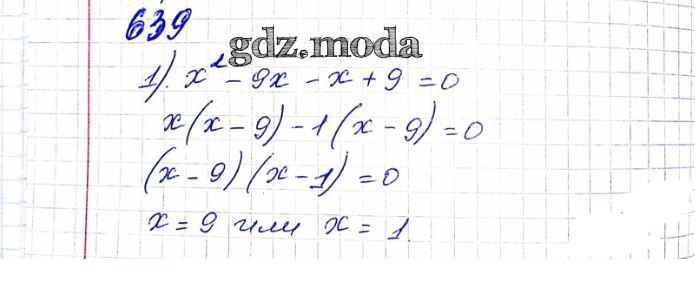 639
gdz.moda
1). x² - 9x - x + 9 = 0
x(x - 9) - 1(x - 9) = 0
(x - 9)(x - 1) = 0
x = 9 или x = 1.